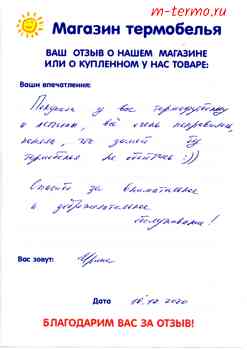 m-termo.ru
Магазин термобелья
ВАШ ОТЗЫВ О НАШЕМ МАГАЗИНЕ
ИЛИ О КУПЛЕННОМ У НАС ТОВАРЕ:
Ваши впечатления:
Покупали у вас
все очень понравилось,
что зимой без
термобелья не обойтись :))
Спасибо за внимательное
и доброжелательное
обслуживание!
Вас зовут: Ирина
Дата
БЛАГОДАРИМ ВАС ЗА ОТЗЫВ!